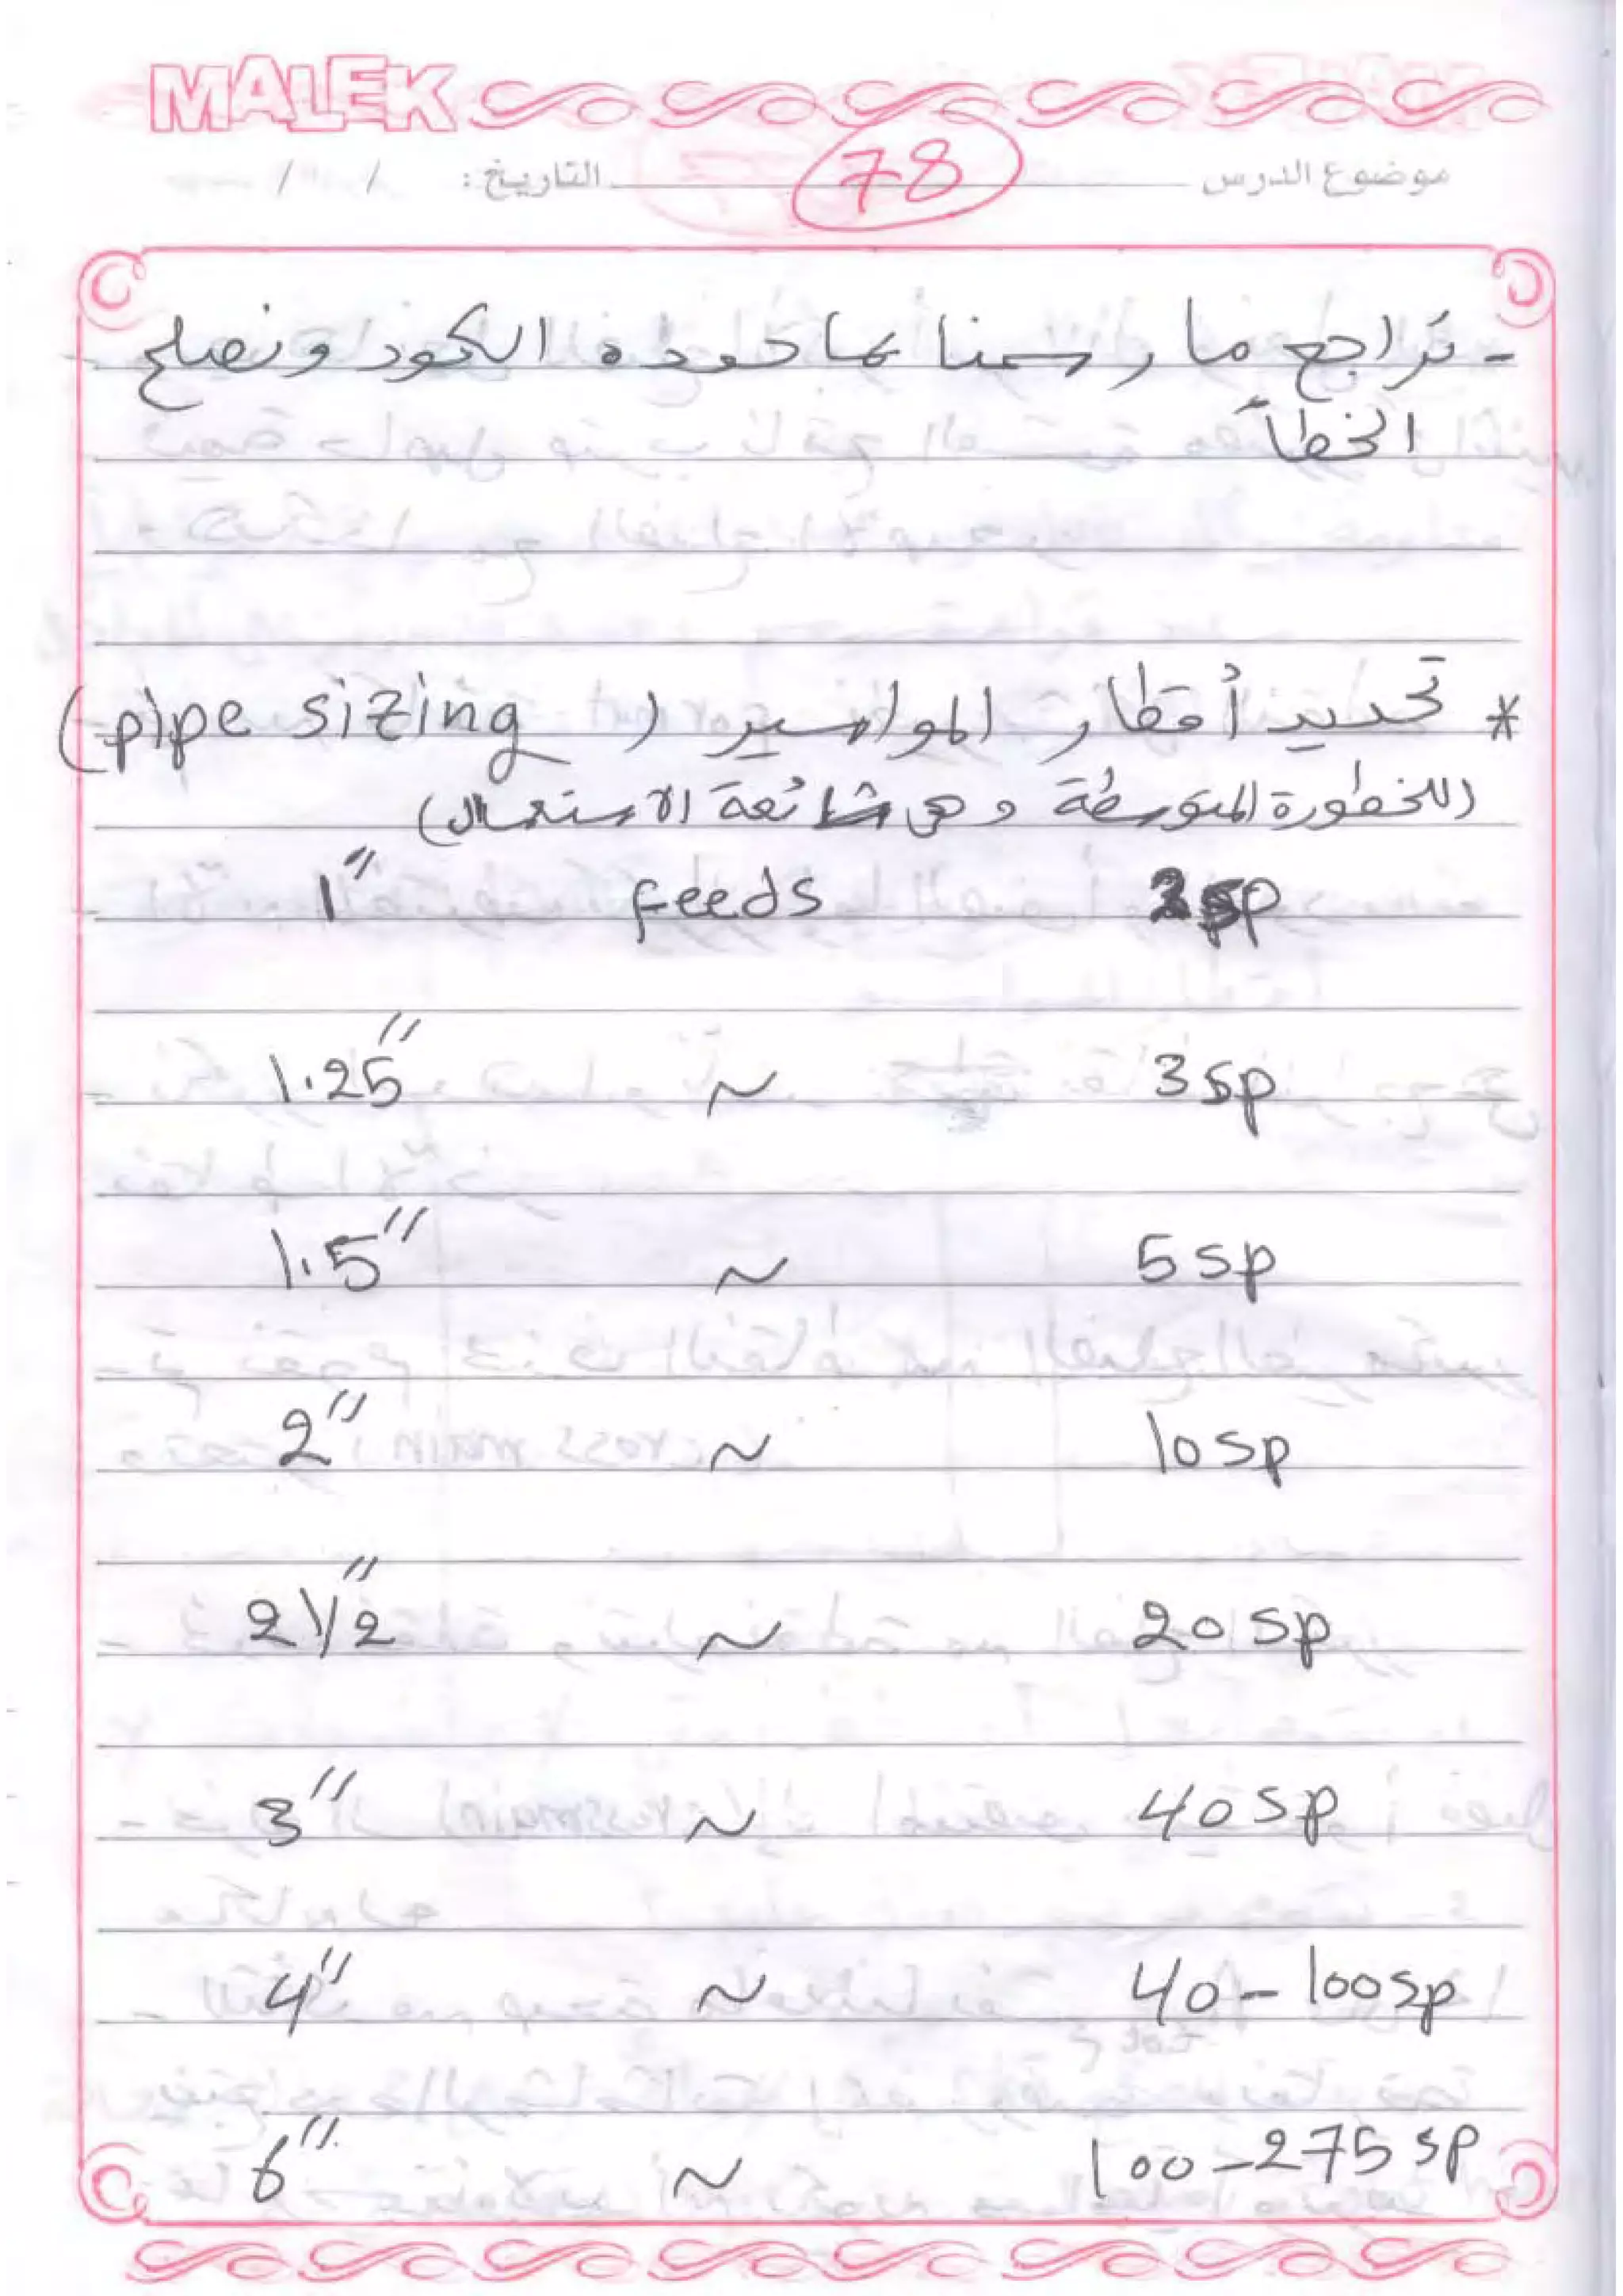 MALEK
موضوع الدرس 78 التاريخ: / /
- نراجع ما رسمنا بما حدده الكود ونصلح
الخطأ
* تحديد أقطار المواسير (pipe sizing)
(للخطورة المتوسطة وهى شائعة الاستعمال)
1" feeds 2sp
1.25" ~ 3sp
1.5" ~ 5sp
2" ~ 10sp
2 1/2" ~ 20sp
3" ~ 40sp
4" ~ 40-100sp
6" ~ 100-275sp